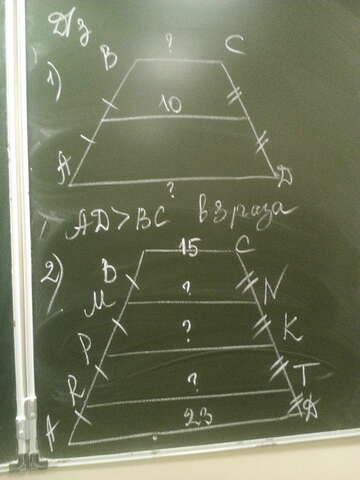 Д/з
B ? C
1)
10
A ? D
AD>BC в 3 раза
2)
B 15 C
M ? N
P ? K
R ? T
A 23 D